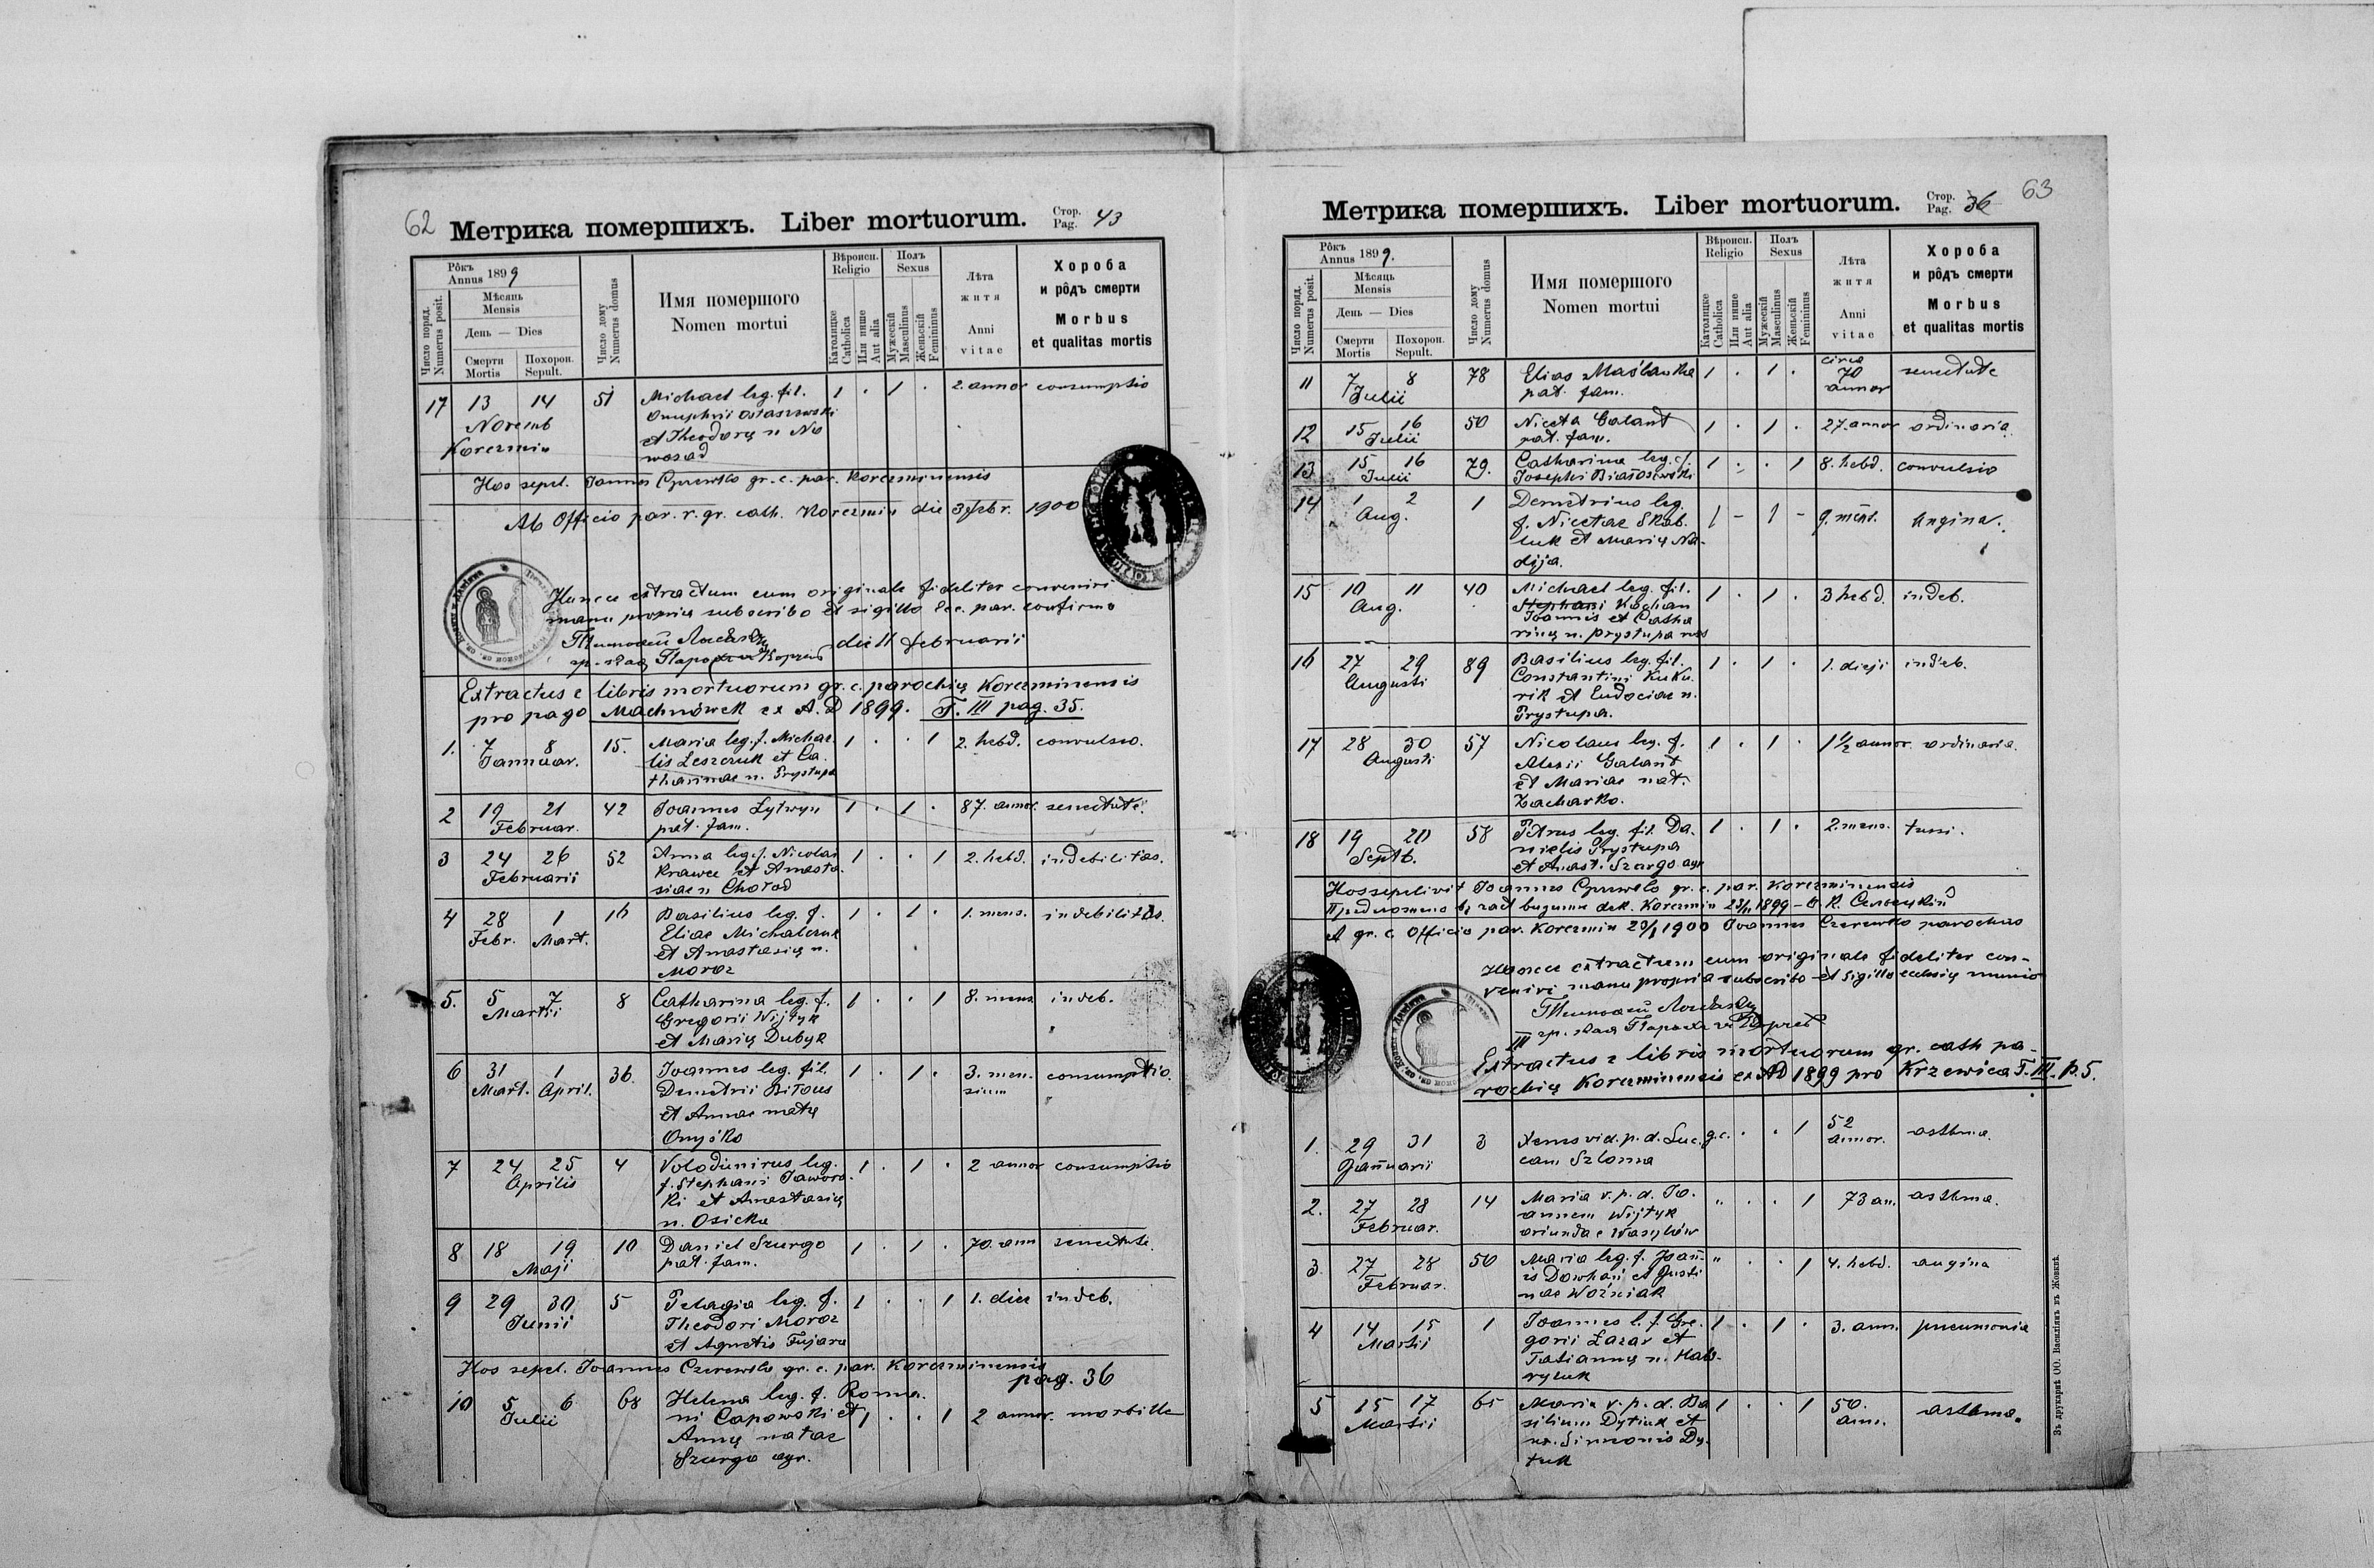 62 Метрика помершихъ. Liber mortuorum. Стор. Pag. 43
Рôкъ Annus 1899
Мѣсяць Mensis
День — Dies
Смерти Mortis
Похорон. Sepult.
Число поряд. Numerus posit.
Число дому Numerus domus
Имя помершого Nomen mortui
Вѣроисп. Religio
Католицке Catholica
Или инше Aut alia
Полъ Sexus
Мужескій Masculinus
Женьскій Femininus
Лѣта житя Anni vitae
Хороба и рôдъ смерти
Morbus et qualitas mortis
17 13 14 51 Michael leg. fil. 1 . 1 . 2. annor consumptio
Novemb Onuphrii Ostaszewski
Korczmin et Theodorę n No
wosad
Hos sepel. Joannes gr. c. par. Korczminensis
Ab Officio par. r. gr. cath. Korczmin die 3 Febr. 1900
Hunce extractum cum originale fideliter conveniri
manu propria subscribo et sigillo Ecc. par. confirmo
die 11 februarii
Extractus e libris mortuorum gr. c. parochię Korczminensis
pro pago Machnówek ex A. D 1899. T. III pag. 35.
1. 7 8 15. Maria leg. f. Michae. 1 . . 1 2. hebd. convulsio.
Januar. lis Leszczuk et Ca.
tharinae n. Prystupa
2 19 21 42 Joannes Lytwyn 1 . 1 . 87. annor. senectute.
Februar. pat. fam.
3 24 26 52 Anna leg. f. Nicolai 1 . . 1 2. hebd. indebilitas.
Februarii Krawec et Anasta.
siae n Chołod
4 28 1 16 Basilius leg. f. 1 . 1 . 1. mens. indebilitas.
Febr. Mart. Eliae Michalczuk
et Anastasię n.
Moroz
5. 5 7 8 Catharina leg. f. 1 . . 1 8. mens indeb.
Martii Gregorii Wijtyk
et Marię Dubyk
6 31 1 36. Joannes leg. fil. 1 . 1 . 3. men. consumptio.
Mart. April. Demetrii Biłous sium
et Annae natę
Onyśko
7 24 25 4 Volodimirus leg. 1 . 1 . 2 annor consumptio
Aprilis f. Stephani Jawors.
ki et Anastasię
n. Osicka
8 18 19 10 Daniel Szurgo 1 . 1 . 70. ann senectute.
Maji pat. fam.
9 29 30 5 Pelagia leg. f. 1 . . 1 1. diei indeb.
Junii Theodori Moroz
et Agnetis Fujara
Hos sepel. Joannes gr. c. par. Korczminensis
pag. 36
10 5 6 68 Helena leg. f. Roma. 1 . . 1 2 annor. morbilli
Julii ni Capowski et
Annę natae
Szurgo agr.
Метрика помершихъ. Liber mortuorum. Стор. Pag. 36 63
Рôкъ Annus 1899.
Мѣсяць Mensis
День — Dies
Смерти Mortis
Похорон. Sepult.
Число поряд. Numerus posit.
Число дому Numerus domus
Имя помершого Nomen mortui
Вѣроисп. Religio
Католицке Catholica
Или инше Aut alia
Полъ Sexus
Мужескій Masculinus
Женьскій Femininus
Лѣта житя Anni vitae
Хороба и рôдъ смерти
Morbus et qualitas mortis
11 7 8 78 Elias Maślanka 1 . 1 . circa 70 annor senectute
Julii pat. fam.
12 15 16 50 Niceta Galant 1 . 1 . 27. annor ordinaria
Julii pat. fam.
13 15 16 79. Catharina leg. f. 1 . . 1 8. hebd. convulsio
Julii Josephi Białosewski
14 1 2 1 Demetrius leg. 1 - 1 - 9. mens. angina.
Aug. f. Nicetae Skob.
luk et Marię Na.
dija.
15 10 11 40 Michael leg. fil. 1 . 1 . 3 hebd. indeb.
Aug. Stephani Kochan
Joannis et Catha
rinę n. Prystupa
16 27 29 89 Basilius leg. fil. 1 . 1 . 1. dieji indeb.
Augusti Constantini Kuku.
rik et Eudociae n.
Prystupa.
17 28 30 57 Nicolaus leg. f. 1 . 1 . 1 1/2 annor. ordinaria.
Augusti Alexii Galant
et Mariae nat.
Zacharko.
18 19 20 58 Petrus leg. fil. Da. 1 . 1 . 2. mens. tussi.
Septb. nielis Prystupa
et Anast. Szurgo agr
Hos sepelivit Joannes gr. c. par. Korczminensis
A gr. c. Officio par. Korczmin 20/1 1900 Joannes parochus
Hunce extractum cum originale fideliter con-
veniri manu propria subscribo et sigillo ecclesię munio
Extractus e libris mortuorum gr. cath pa-
rochię Korczminensis ex AD 1899 pro Krzewica T. III. p. 5.
1. 29 31 3 Xenia vid. p. d. Luc. g.c. . . 1 52 annor. asthma.
Januarii cam Szlonna
2. 27 28 14 Maria v. p. d. Jo. " . . 1 73 an. asthma.
Februar. annem Wijtyk
oriunda e Wasylów
3. 27 28 50 Maria leg. f. Joan. " . . 1 4. hebd. angina
Februar. is Dowhań et Justi
nae Woźniak
4 14 15 1 Joannes l. f. Gre. 1 . 1 . 3. ann. pneumonia
Martii gorii Lazar et
Tatiannę n. Haw-
ryluk
5 15 17 65 Maria v. p. d. Ba 1 . . 1 50. ann. asthma.
Martii silium Dytiuk et
Simeonis Dy.
tuk
Зъ друкарнѣ ОО. Василіянъ въ Жовквѣ.